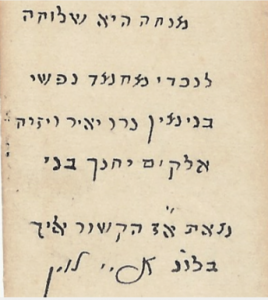 מנחה היא שלוחה
לנכדי מחמד נפשי
בנימין נרו יאיר ויזרח
אלקים יחנך בני
מאת א״ז הקשור אליך
בלונ א.. לוין